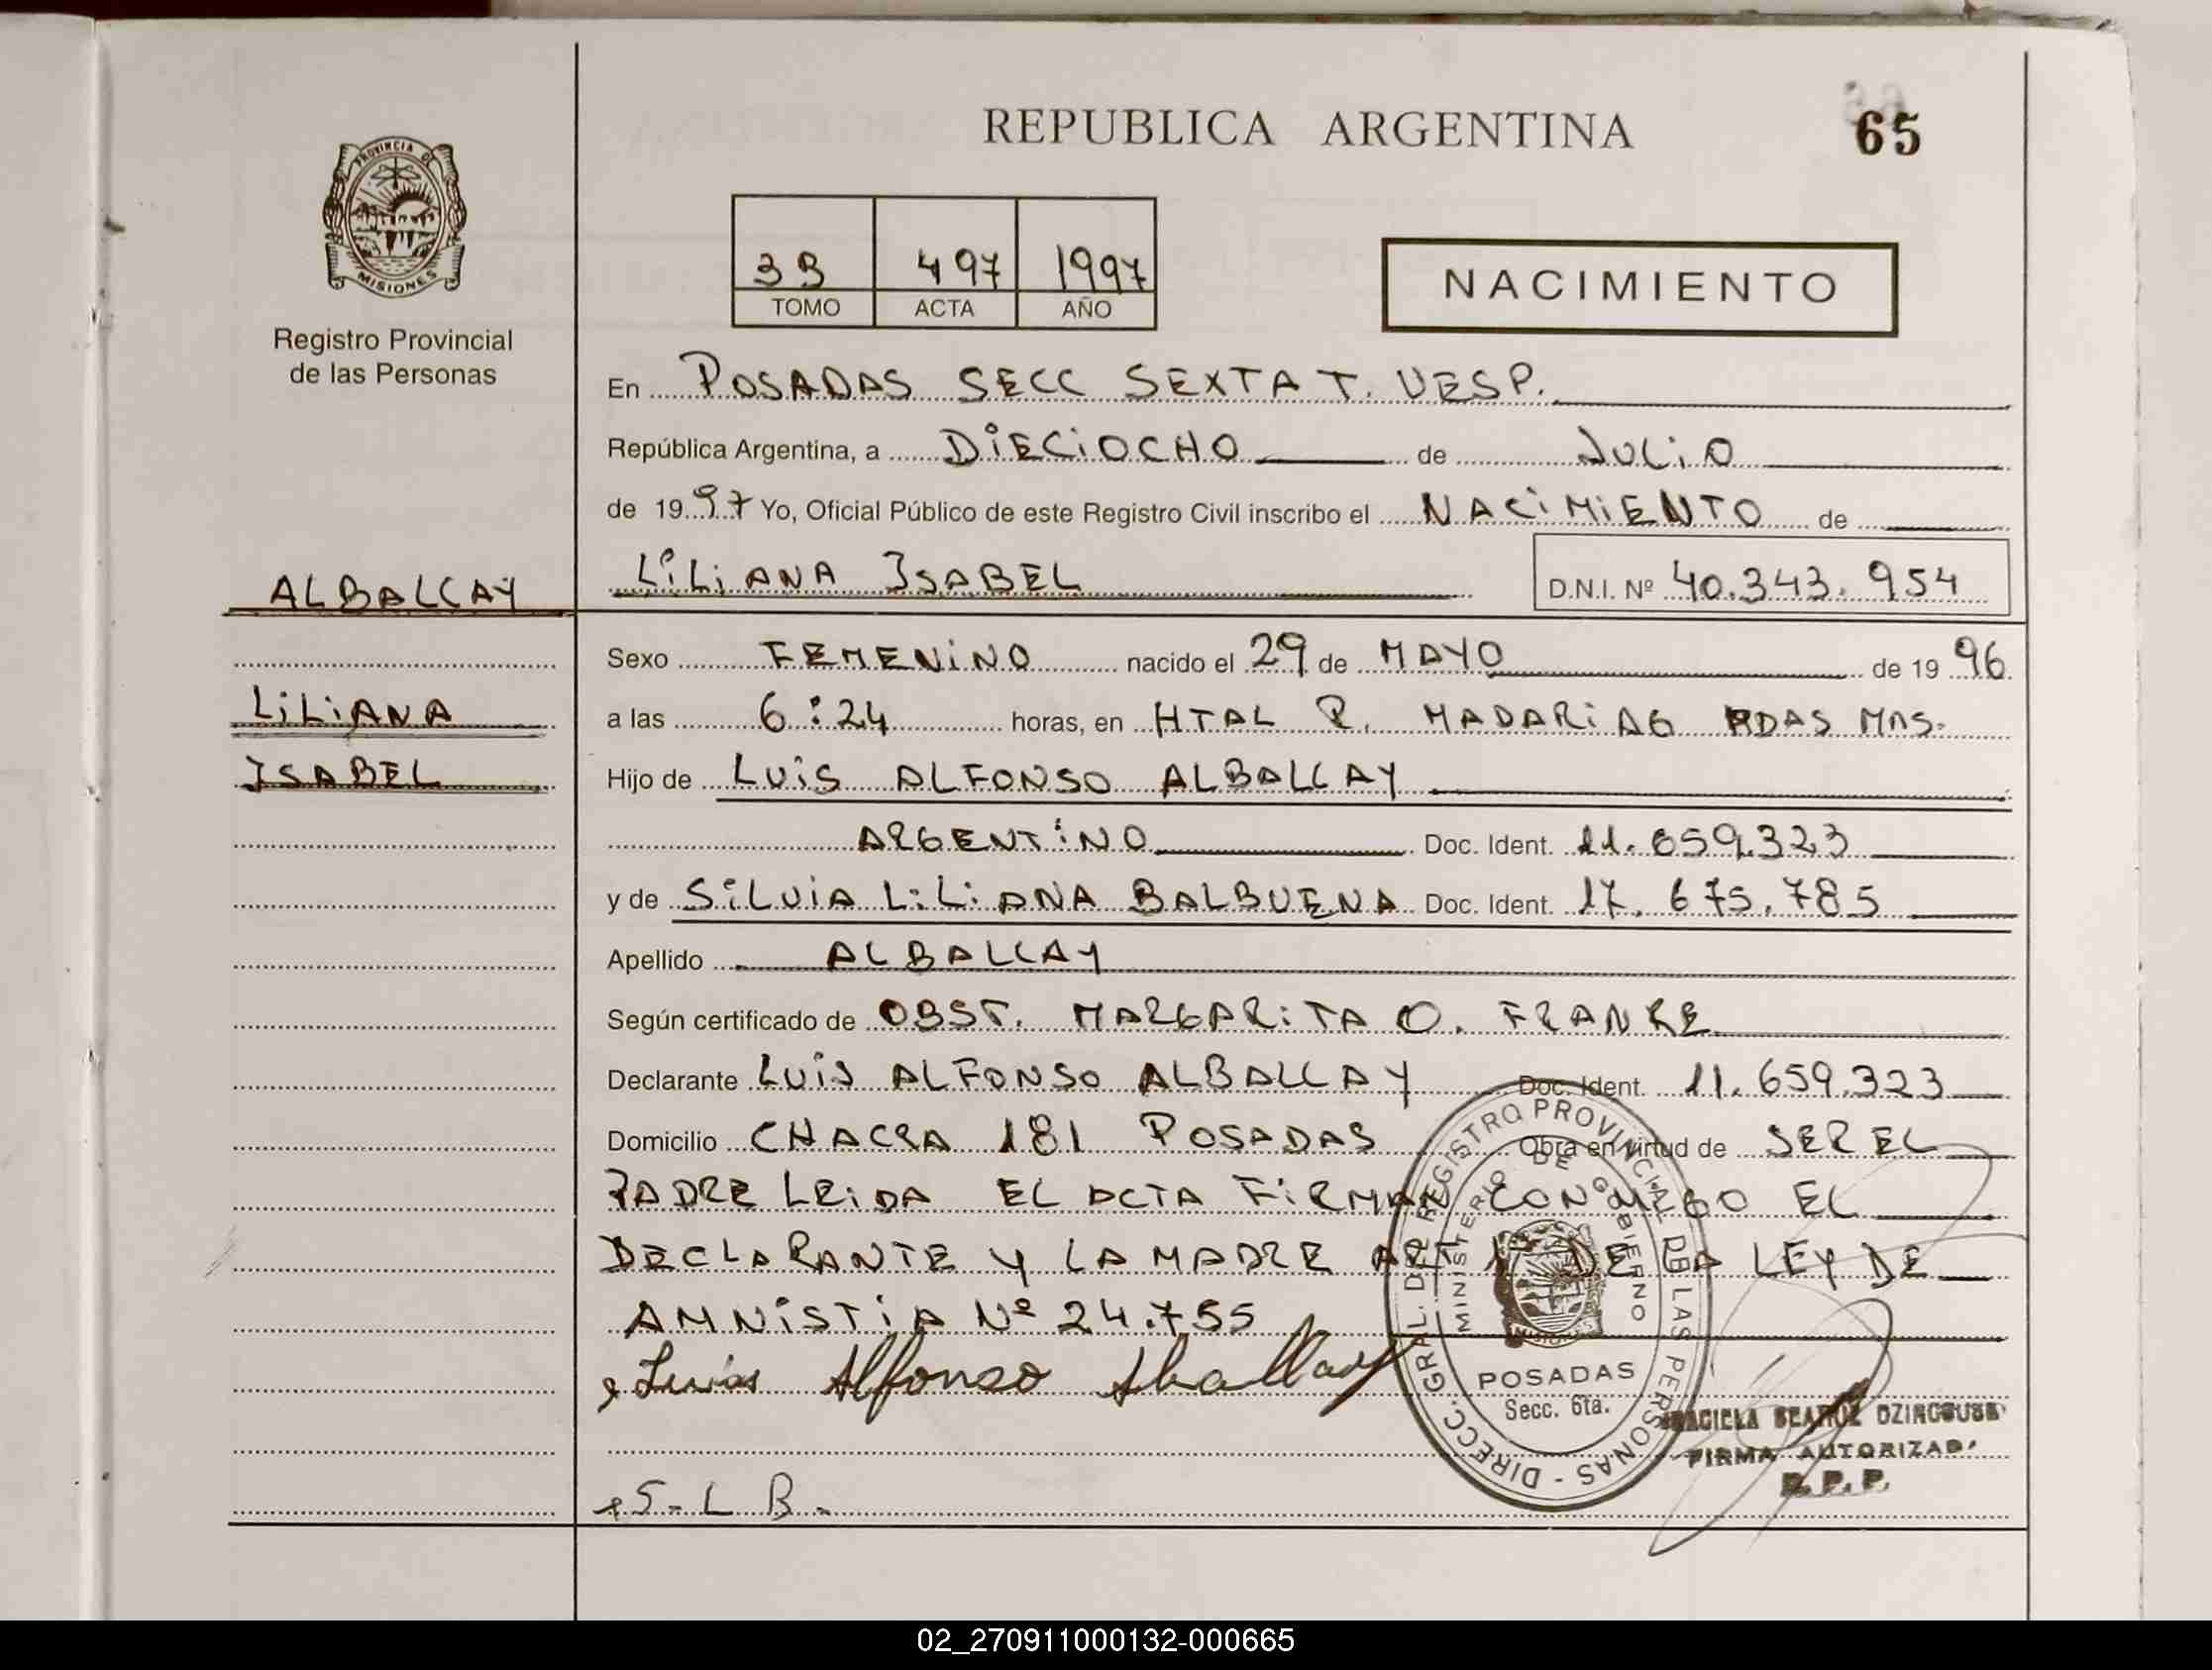 REPUBLICA ARGENTINA
65
PROVINCIA DE
MISIONES
Registro Provincial
de las Personas
33 497 1997
TOMO ACTA AÑO
NACIMIENTO
En POSADAS SECC SEXTA T. VESP.
República Argentina, a DIECIOCHO de JULIO
de 1997 Yo, Oficial Público de este Registro Civil inscribo el NACIMIENTO de
LILIANA ISABEL D.N.I. Nº 40.343.954
ALBALLAY
LILIANA
ISABEL
Sexo FEMENINO nacido el 29 de MAYO de 1996
a las 6:24 horas, en HTAL R. MADARIAG PDAS MNS.
Hijo de LUIS ALFONSO ALBALLAY
ARGENTINO Doc. Ident. 11.659.323
y de SILVIA LILIANA BALBUENA Doc. Ident. 17.675.785
Apellido ALBALLAY
Según certificado de OBST. MARGARITA O. FRANKE
Declarante LUIS ALFONSO ALBALLAY Doc. Ident. 11.659.323
Domicilio CHACRA 181 POSADAS Obra en virtud de SER EL
PADRE LEIDA EL ACTA FIRMAN CONMIGO EL
DECLARANTE Y LA MADRE ART 1º DE LA LEY DE
AMNISTIA Nº 24.755
Luis Alfonso Aballay
DIRECC. GRAL. DEL REGISTRO PROVINCIAL DE LAS PERSONAS
MINISTERIO DE GOBIERNO
MISIONES
POSADAS
Secc. 6ta.
GRACIELA BEATRIZ
FIRMA AUTORIZAD
R.P.P.
S-L B.
02_270911000132-000665